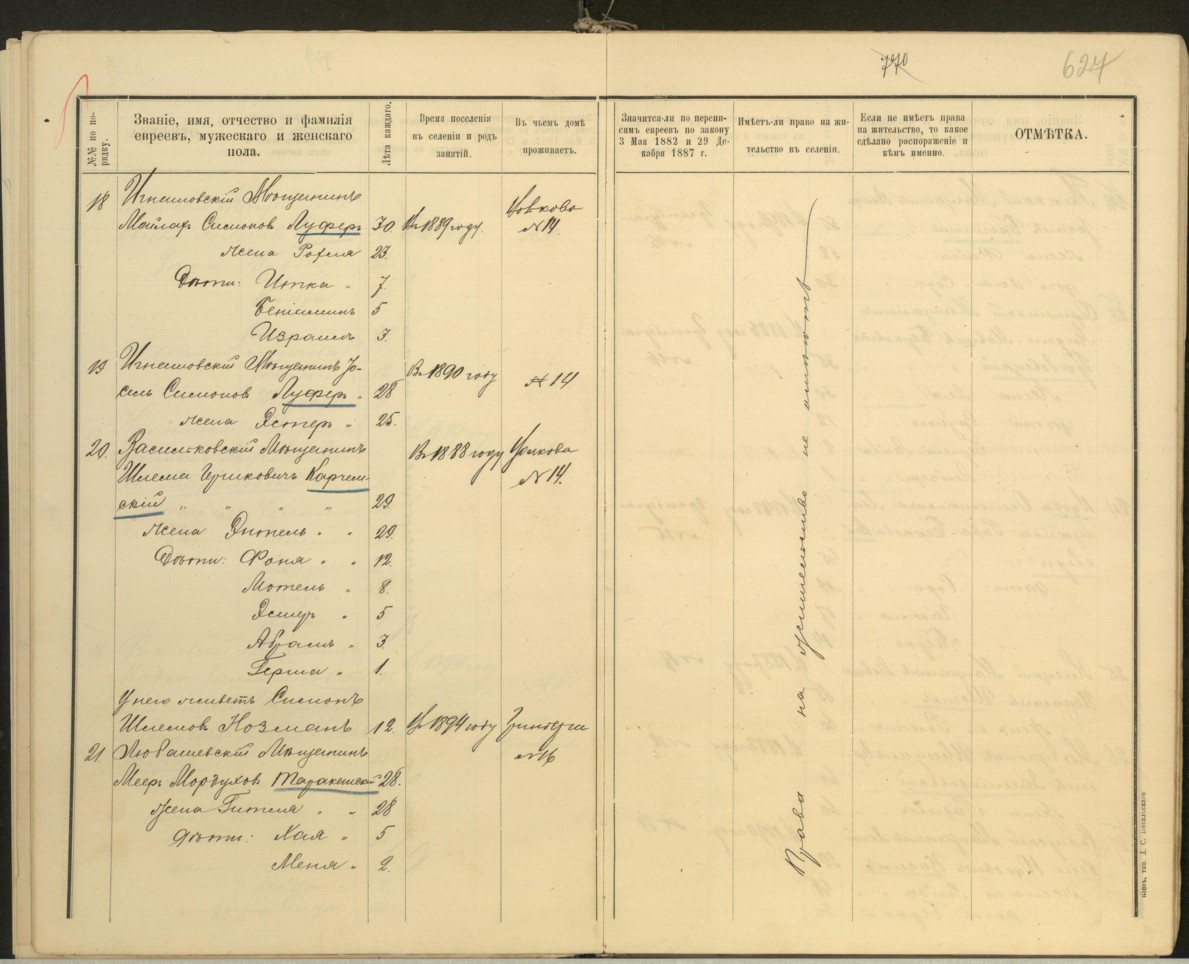 770
624
№№ по по-
рядку.
Званіе, имя, отчество и фамилія
евреевъ, мужескаго и женскаго
пола.
Лѣта каждаго.
Время поселенія
въ селеніи и родъ
занятій.
Въ чьемъ домѣ
проживаетъ.
Значится-ли по перепи-
сямъ евреевъ по закону
3 Мая 1882 и 29 Де-
кабря 1887 г.
Имѣетъ-ли право на жи-
тельство въ селеніи.
Если не имѣетъ права
на жительство, то какое
сдѣлано распоряженіе и
кѣмъ именно.
ОТМѢТКА.
18 Игнатовскій Мѣщанинъ
Майлахъ Симонов Луферъ 30 Въ 1889 году. №14.
жена Рохля 23.
Дѣти: Итка „ 7
Беніаминъ 5
Израиль 3.
19 Игнатовскій Мѣщанинъ Іо-
сель Симонов Луферъ „ 28 Въ 1890 году №14
жена Эстеръ „ 25.
20. Васильковскій Мѣщанинъ Въ 1888 году
Шлема Гершковичъ Карчем- №14.
скій „ „ „ „ 29.
жена Энтель „ „ 29.
Дѣти: Фоня „ „ 12.
Мотель „ 8.
Эстеръ „ 5
Абрамъ „ 3
Герша „ 1.
У него живетъ Симонъ
Шлемов Нозманъ 12. Въ 1894 году
21. Любашевскій Мѣщанинъ №16
Мееръ Мордухов 28.
жена Гителя „ „ 28
Дѣти: Хая „ 5
Меня „ 2.
Права на жительство не имѣютъ
Кіевъ, тип.